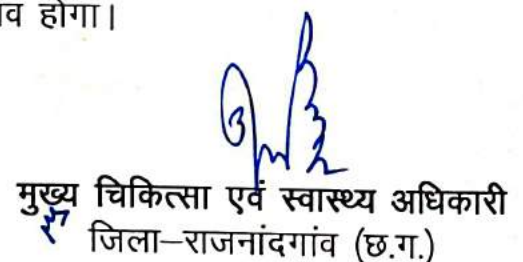 होगा।
मुख्य चिकित्सा एवं स्वास्थ्य अधिकारी
जिला–राजनांदगांव (छ.ग.)